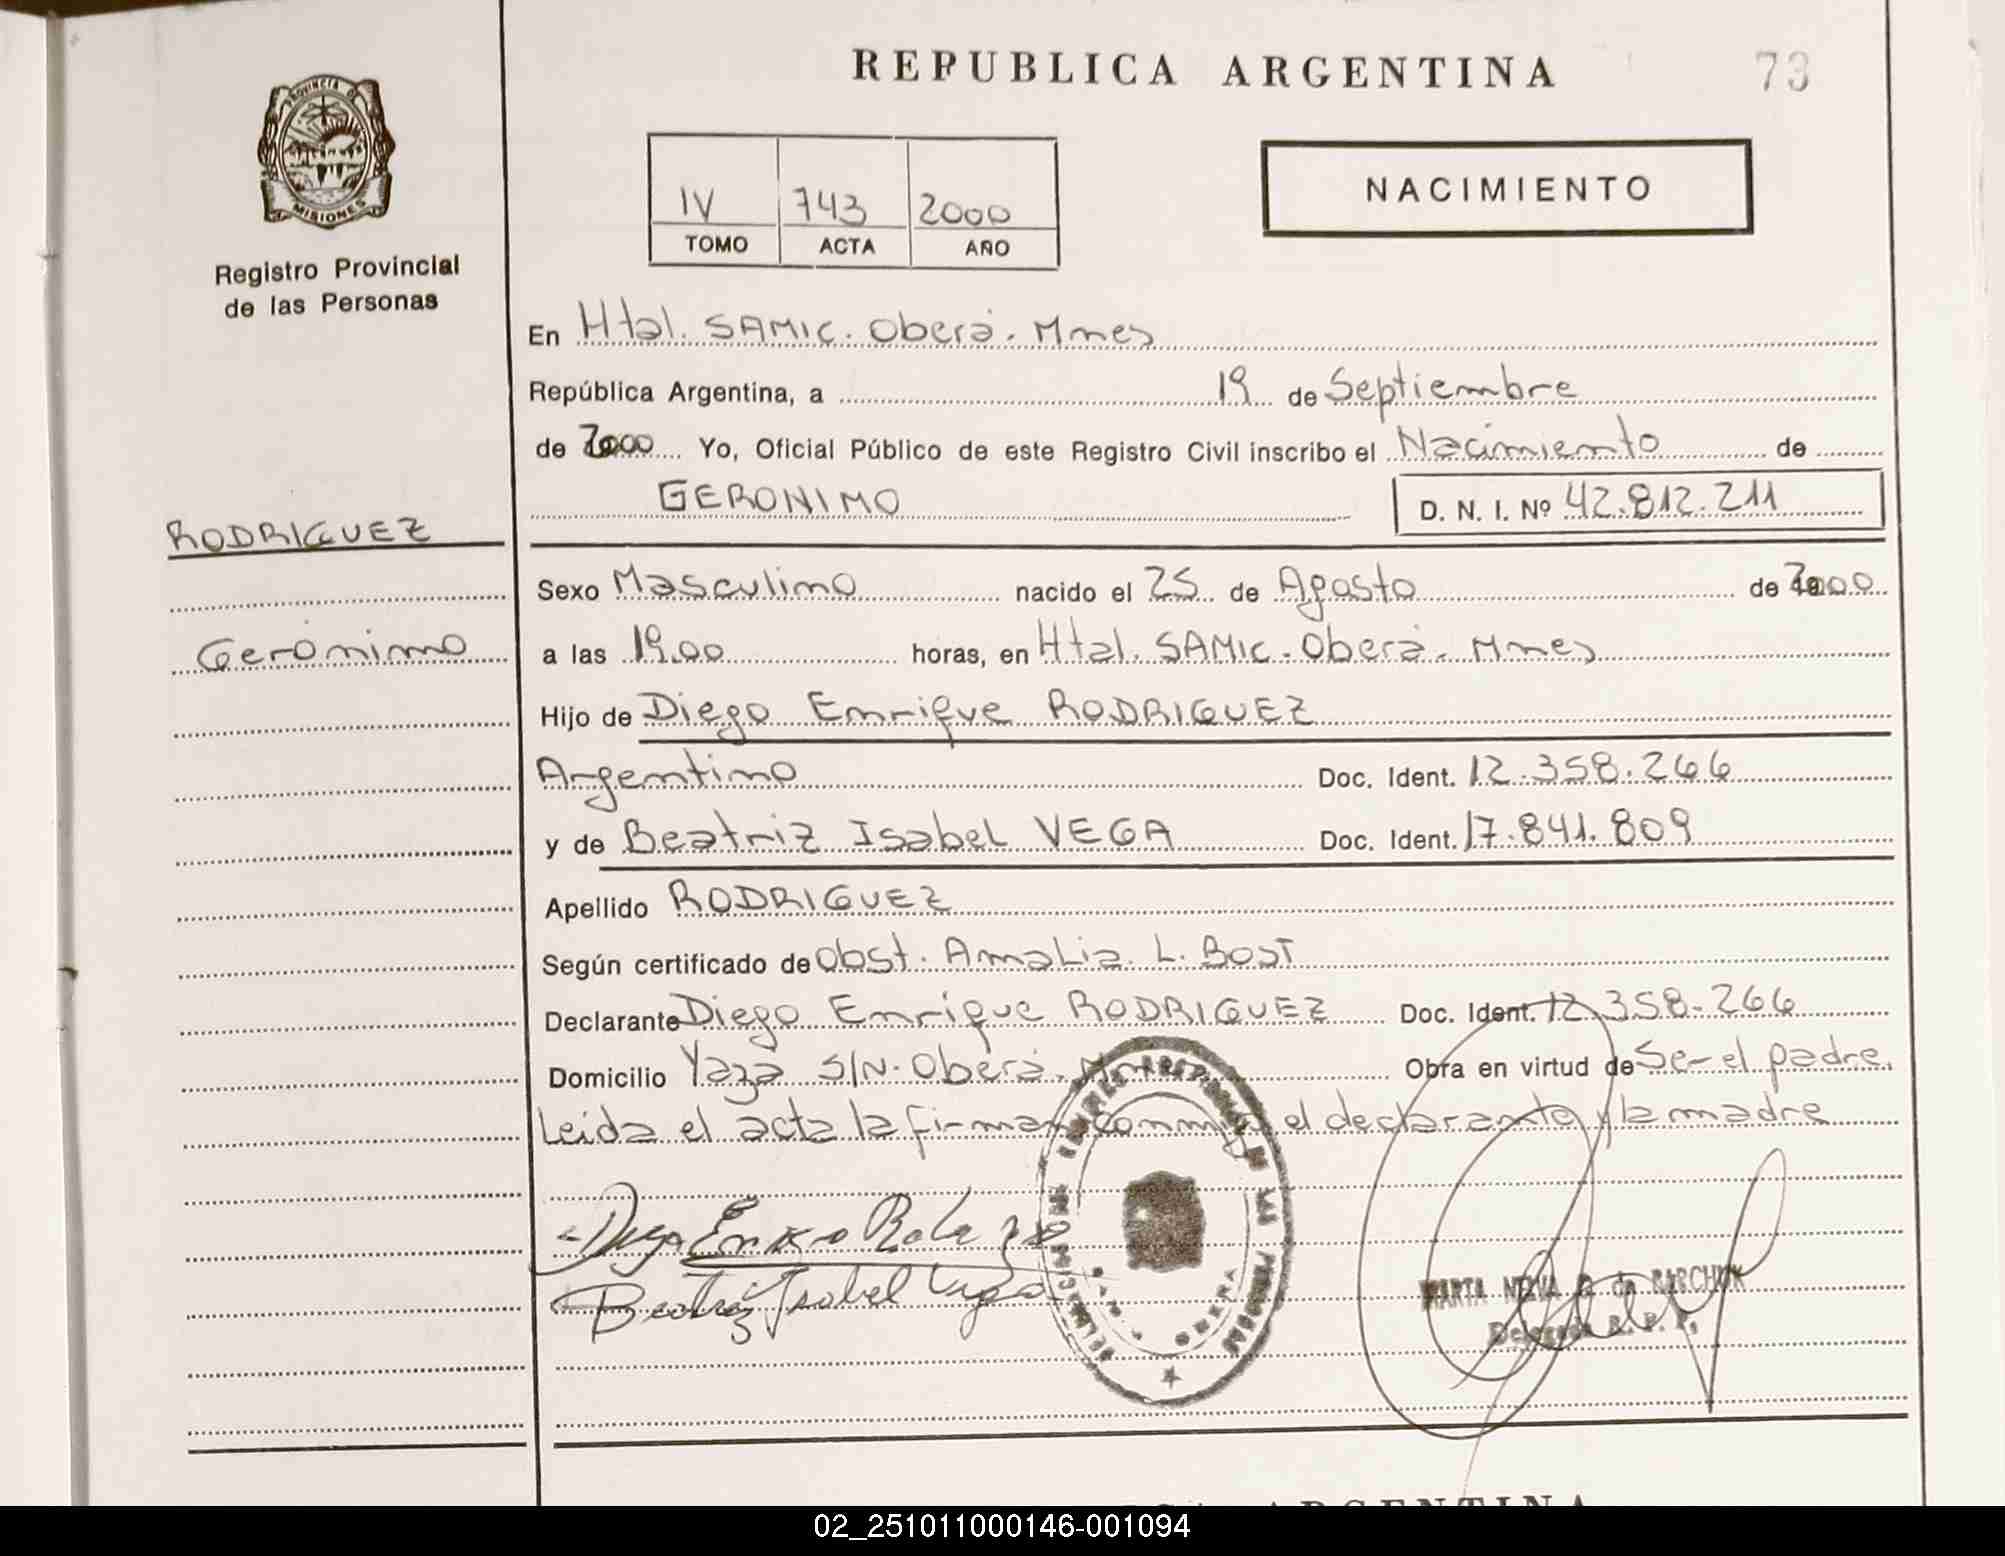 REPUBLICA ARGENTINA
73
PROVINCIA DE
MISIONES
Registro Provincial
de las Personas
IV 743 2000
TOMO ACTA AÑO
NACIMIENTO
En Htal. SAMIC. Oberá. Mnes
República Argentina, a 19 de Septiembre
de 2000 Yo, Oficial Público de este Registro Civil inscribo el Nacimiento de
GERONIMO D. N. I. Nº 42.812.211
RODRIGUEZ
Gerónimo
Sexo Masculino nacido el 25 de Agosto de 2000
a las 19.00 horas, en Htal. SAMIC. Oberá. Mnes
Hijo de Diego Enrique RODRIGUEZ
Argentino Doc. Ident. 12.358.266
y de Beatriz Isabel VEGA Doc. Ident. 17.841.809
Apellido RODRIGUEZ
Según certificado de Obst. Amalia L. BOST
Declarante Diego Enrique RODRIGUEZ Doc. Ident. 12.358.266
Domicilio Yazá S/N. Oberá. Obra en virtud de Ser el padre.
Leida el acta la firman conmigo el declarante y la madre
Beatriz Isabel Vega
MARTA de BARCHUK
Delegada R. P. P.
DE LAS PERSONAS
OBERA
ARGENTINA
02_251011000146-001094